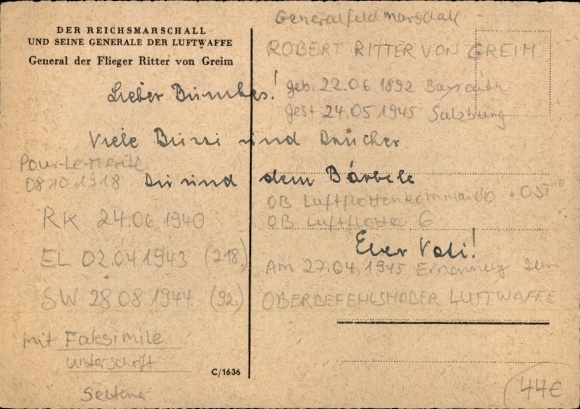 DER REICHSMARSCHALL
UND SEINE GENERALE DER LUFTWAFFE
General der Flieger Ritter von Greim
Generalfeldmarschall
ROBERT RITTER VON GREIM
geb. 22.06 1892 Bayreuth
gest 24.05 1945 Salzburg
Lieber
Viele Bussi und Drücker
Dir und dem Bärbele
Euer Vati!
Pour-Le-Merite
08 10 1918
RK 24.06 1940
EL 02.04 1943 (218)
SW 28 08 1944 (92)
mit Faksimile
unterschrift
Selten
OB Luftflottenkommando "OST"
OB Luftflotte 6
Am 27.04.1945 Ernennung zum
OBERBEFEHLSHABER LUFTWAFFE
C/1636
44€